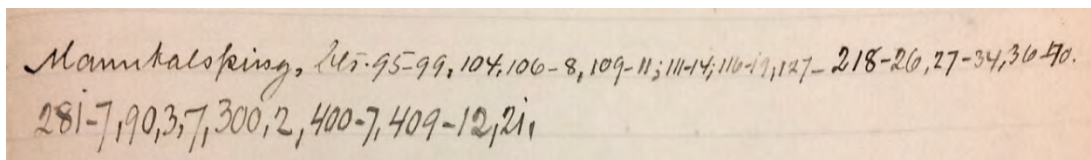 Mannkalsþing, bls. 95-99, 104, 106-8, 109-11; 111-14; 116-19, 127- 218-26, 27-34, 36-40.
281-7, 90, 3, 7, 300, 2, 400-7, 409-12, 21,